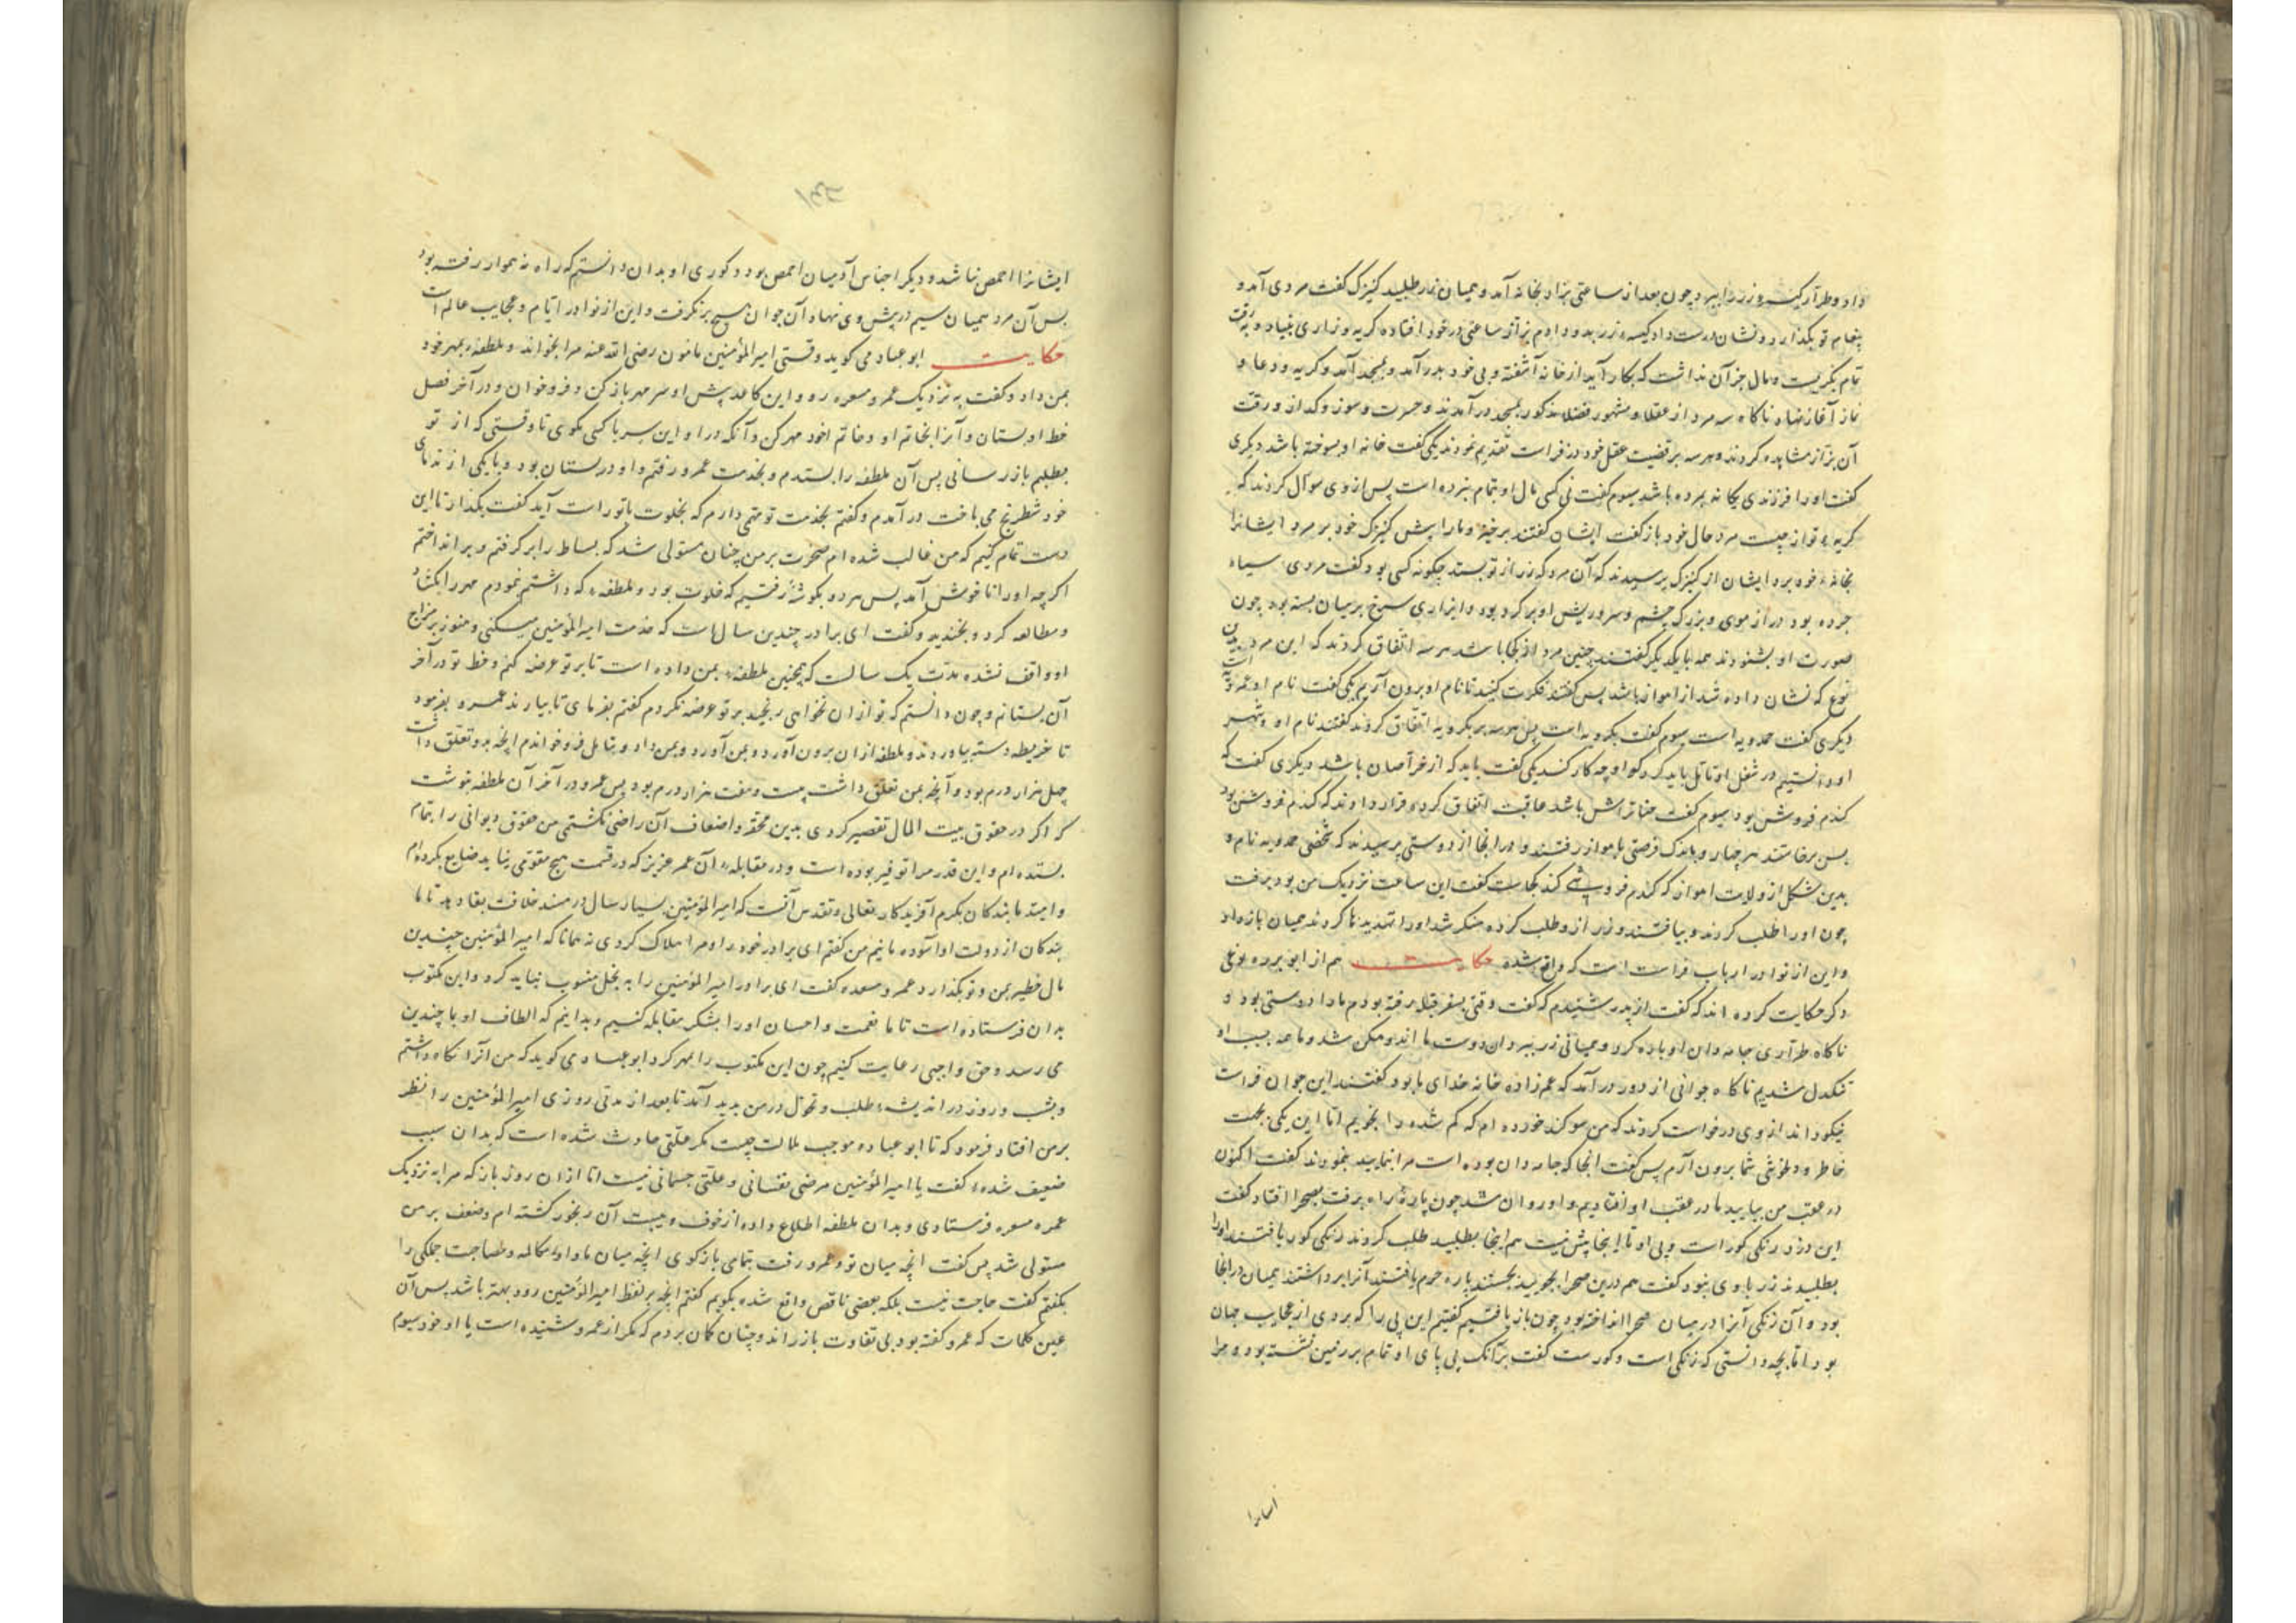 داد و طرار کیسه زر را ببرد چون بعد از ساعتی بزاز بخانه آمد و همیان زر طلبید کنیزک گفت مردی آمد و
پیغام تو بگذارد و نشان درست داد کیسه زر بدو دادم بزاز ساعتی در خود افتاده گریه و زاری بنیاد و برقت
تمام بگریست و مال جز آن نداشت که بکار آید از خانه آشفته و بی خود بدر آمد و بمسجد آمد و گریه و دعا و
نماز آغاز نهاد ناگاه سه مرد از عقلا و مشهور فضلا مذکور بمسجد درآمدند و حسرت و سوز و گداز و رقت
آن بزاز مشاهده کردند و هر سه بر قضیت عقل خود در فراست تقدیم نمودند یکی گفت خانه او بسوخته باشد دیگری
گفت او را فرزندی یگانه بمرده باشد سیوم گفت نی کسی مال او بتمام ببرده است پس از وی سوال کردند که
گریه تو از چیست مرد حال خود بازگفت ایشان گفتند برخیز و ما را پیش کنیزک خود بر مرد ایشانرا
بخانه خود برد ایشان از کنیزک پرسیدند که آن مرد که زر از تو بستد چگونه کسی بود گفت مردی سیاه
جرده بود دراز موی و بزرگ چشم و سر و ریش او بر کرد بود و ایزاری سرخ بر میان بسته بود چون
صورت او بشنودند همه با یکدیگر گفتند چنین مرد از کجا باشد هر سه اتفاق کردند که این مرد بدین
نوع که نشان داده شد از اهواز باشد پس گفتند فکرت کنید تا نام او برون آریم یکی گفت نام او عمرویه است
دیگری گفت حمدویه است سیوم گفت بکرویه است پس هر سه بر بکرویه اتفاق کردند گفتند نام او و شهر
او دانستیم در شغل او تامل باید کرد کو او چه کار کند یکی گفت باید که از خراصان باشد دیگری گفت که
گندم فروش بود سیوم گفت خناتراش باشد عاقبت اتفاق کرده قرار دادند که گندم فروشش بود
پس برخاستند هر چهار و باندک فرصتی باهواز رفتند و در انجا از دوستی پرسیدند که شخصی حمدویه نام و
بدین شکل از ولایت اهواز که گندم فروشی کند کجاست گفت این ساعت نزدیک من بود برفت
چون او را طلب کردند و بیافتند و زر از و طلب کرده منکر شد او را تهدیدها کردند همیان بازداد
و این از نوادر ارباب فراست است که واقع شده حکایت هم از ابو برده بوعلی
دگر حکایت کرده اند که گفت از پدر شنیدم که گفت وقتی بسفر قبله رفته بودم ما را دوستی بود و
ناگاه طراری جامه دان او پاره کرد و همیانی زر ببرد ان دوست ما اندوهگن شد و ما همه بسبب او
تنگدل شدیم ناگاه جوانی از دور درآمد که عم زاده خانه خدای ما بود گفتند این جوان فراست
نیکو داند از وی درخواست کردند که من سوگند خورده ام که گم شده را نجویم اما این یکی بجهت
خاطر و دلخوشی شما برون آرم پس گفت انجا که جامه دان بوده است مرا بنمایید بنمودند گفت اکنون
در عقب من بیایید ما در عقب او افتادیم و او روان شد چون پاره راه برفت بصحرا افتاد گفت
این دزد زنگی کور است و پی او تا اینجا پیش نیست هم اینجا بطلبید طلب کردند زنگی کور یافتند او را
بطلبیدند زر با وی نبود گفت هم درین صحرا بجویید بجستند پاره چرم یافتند آنرا برداشتند همیان در انجا
بود و آن زنگی آنرا در میان صحرا انداخته بود چون باز یافتیم گفتیم این پی را که بردی از عجایب جهان
بود اما بچه دانستی که زنگی است و کورست گفت بزانک پی پای او تمام بر زمین نشسته بود و مرا
ایشانرا
ایشانرا اخمص نباشد و دیگر اجناس آدمیان اخمص بود و کوری او بدان دانستم که راه نه هموار رفته بود
پس آن مرد همیان سیم در پیش وی نهاد آن جوان هیچ برنگرفت و این از نوادر ایام و عجایب عالم است
حکایت ابو عباد می گوید وقتی امیرالمؤمنین مامون رضی الله عنه مرا بخواند و ملطفه بمهر خود
بمن داد و گفت به نزدیک عمرو مسعده رو و این کاغد پیش او سر مهر باز کن و فرو خوان و در آخر فصل
خط او بستان و آنرا بخاتم او و خاتم خود مهر کن و آنگه در او این سر با کسی مگوی تا وقتی که از تو
بطلبم باز رسانی پس آن ملطفه را بستدم و بخدمت عمرو رفتم و او در بستان بود و با یکی از ندمای
خود شطرنج می باخت درآمدم و گفتم بخدمت تو مهمی دارم که بخلوت باتو راست آید گفت بگذار تا این
دست تمام کنیم که من غالب شده ام ضجرت بر من چنان مستولی شد که بساط را برگرفتم و برانداختم
اگرچه او را ناخوش آمد پس هر دو بگوشه رفتیم که خلوت بود و ملطفه که داشتم نمودم مهر را بکشاد
و مطالعه کرد و بخندید و گفت ای برادر چندین سال است که خدمت امیرالمؤمنین میکنی و هنوز بر مزاج
او واقف نشده مدت یک سالست که همچنین ملطفه بمن داده است تا بر تو عرضه کنم و خط تو در آخر
آن بستانم و چون دانستم که تو از ان نخواهی رنجید بر تو عرضه نکردم گفتم بفرمای تا بیارند عمرو بفرمود
تا خریطه دسته بیاوردند و ملطفه از ان برون آورد و بمن آورد و بمن داد و بتامل فرو خواندم انچه بدو تعلق داشت
چهل هزار درم بود و آنچه بمن تعلق داشت بیست و هفت هزار درم بود پس عمرو در آخر آن ملطفه نوشت
که اگر در حقوق بیت المال تقصیر کردی بدین محقر و اضعاف آن راضی نگشتی من حقوق دیوانی را بتمام
بستده ام و این قدر مرا توفیر بوده است و در مقابله آن عمر عزیز که در قیمت هیچ مقومی نیاید ضایع کرده ام
و امید ما بندگان بکرم آفریدکار تعالی و تقدس آنست که امیرالمؤمنین بسیار سال در مسند خلافت بقا دهد تا ما
بندگان از دولت او آسوده مانیم من گفتم ای برادر خود را و مرا هلاک کردی نه همانا که امیرالمؤمنین چندین
مال خطیر بمن و تو بگذارد عمرو مسعده گفت ای برادر امیرالمؤمنین را به بخل منسوب نباید کرد و این مکتوب
بدان فرستاده است تا ما نعمت و احسان او را بشکر مقابله کنیم و بدانیم که الطاف او با چندین
می رسد و حق واجبی رعایت کنیم چون این مکتوب را مهر کرد ابو عباد می گوید که من انرا نگاه داشتم
و بشب و روز در اندیشه طلب و تحول در من پدید آمد تا بعد از مدتی روزی امیرالمؤمنین را نظر
بر من افتاد فرمود که تا ابو عباده موجب ملالت چیست مگر علتی حادث شده است که بدان سبب
ضعیف شده گفت یا امیرالمؤمنین مرضی نفسانی و علتی جسمانی نیست اما از ان روز باز که مرا به نزدیک
عمرو مسعده فرستادی و بدان ملطفه اطلاع داده از خوف و هیبت آن رنجور گشته ام و ضعف بر من
مستولی شد پس گفت انچه میان تو و عمرو رفت بتمامی بازگوی انچه میان ما و او مکالمه و مصاحبت جملگی را
بگفتم گفت حاجت نیست بلکه بعضی ناقص واقع شده بگویم گفتم انچه بر لفظ امیرالمؤمنین رود بهتر باشد پس آن
عین کلمات که عمرو گفته بود بی تفاوت باز راند و چنان گمان بردم که مگر از عمرو شنیده است یا او خود سیوم